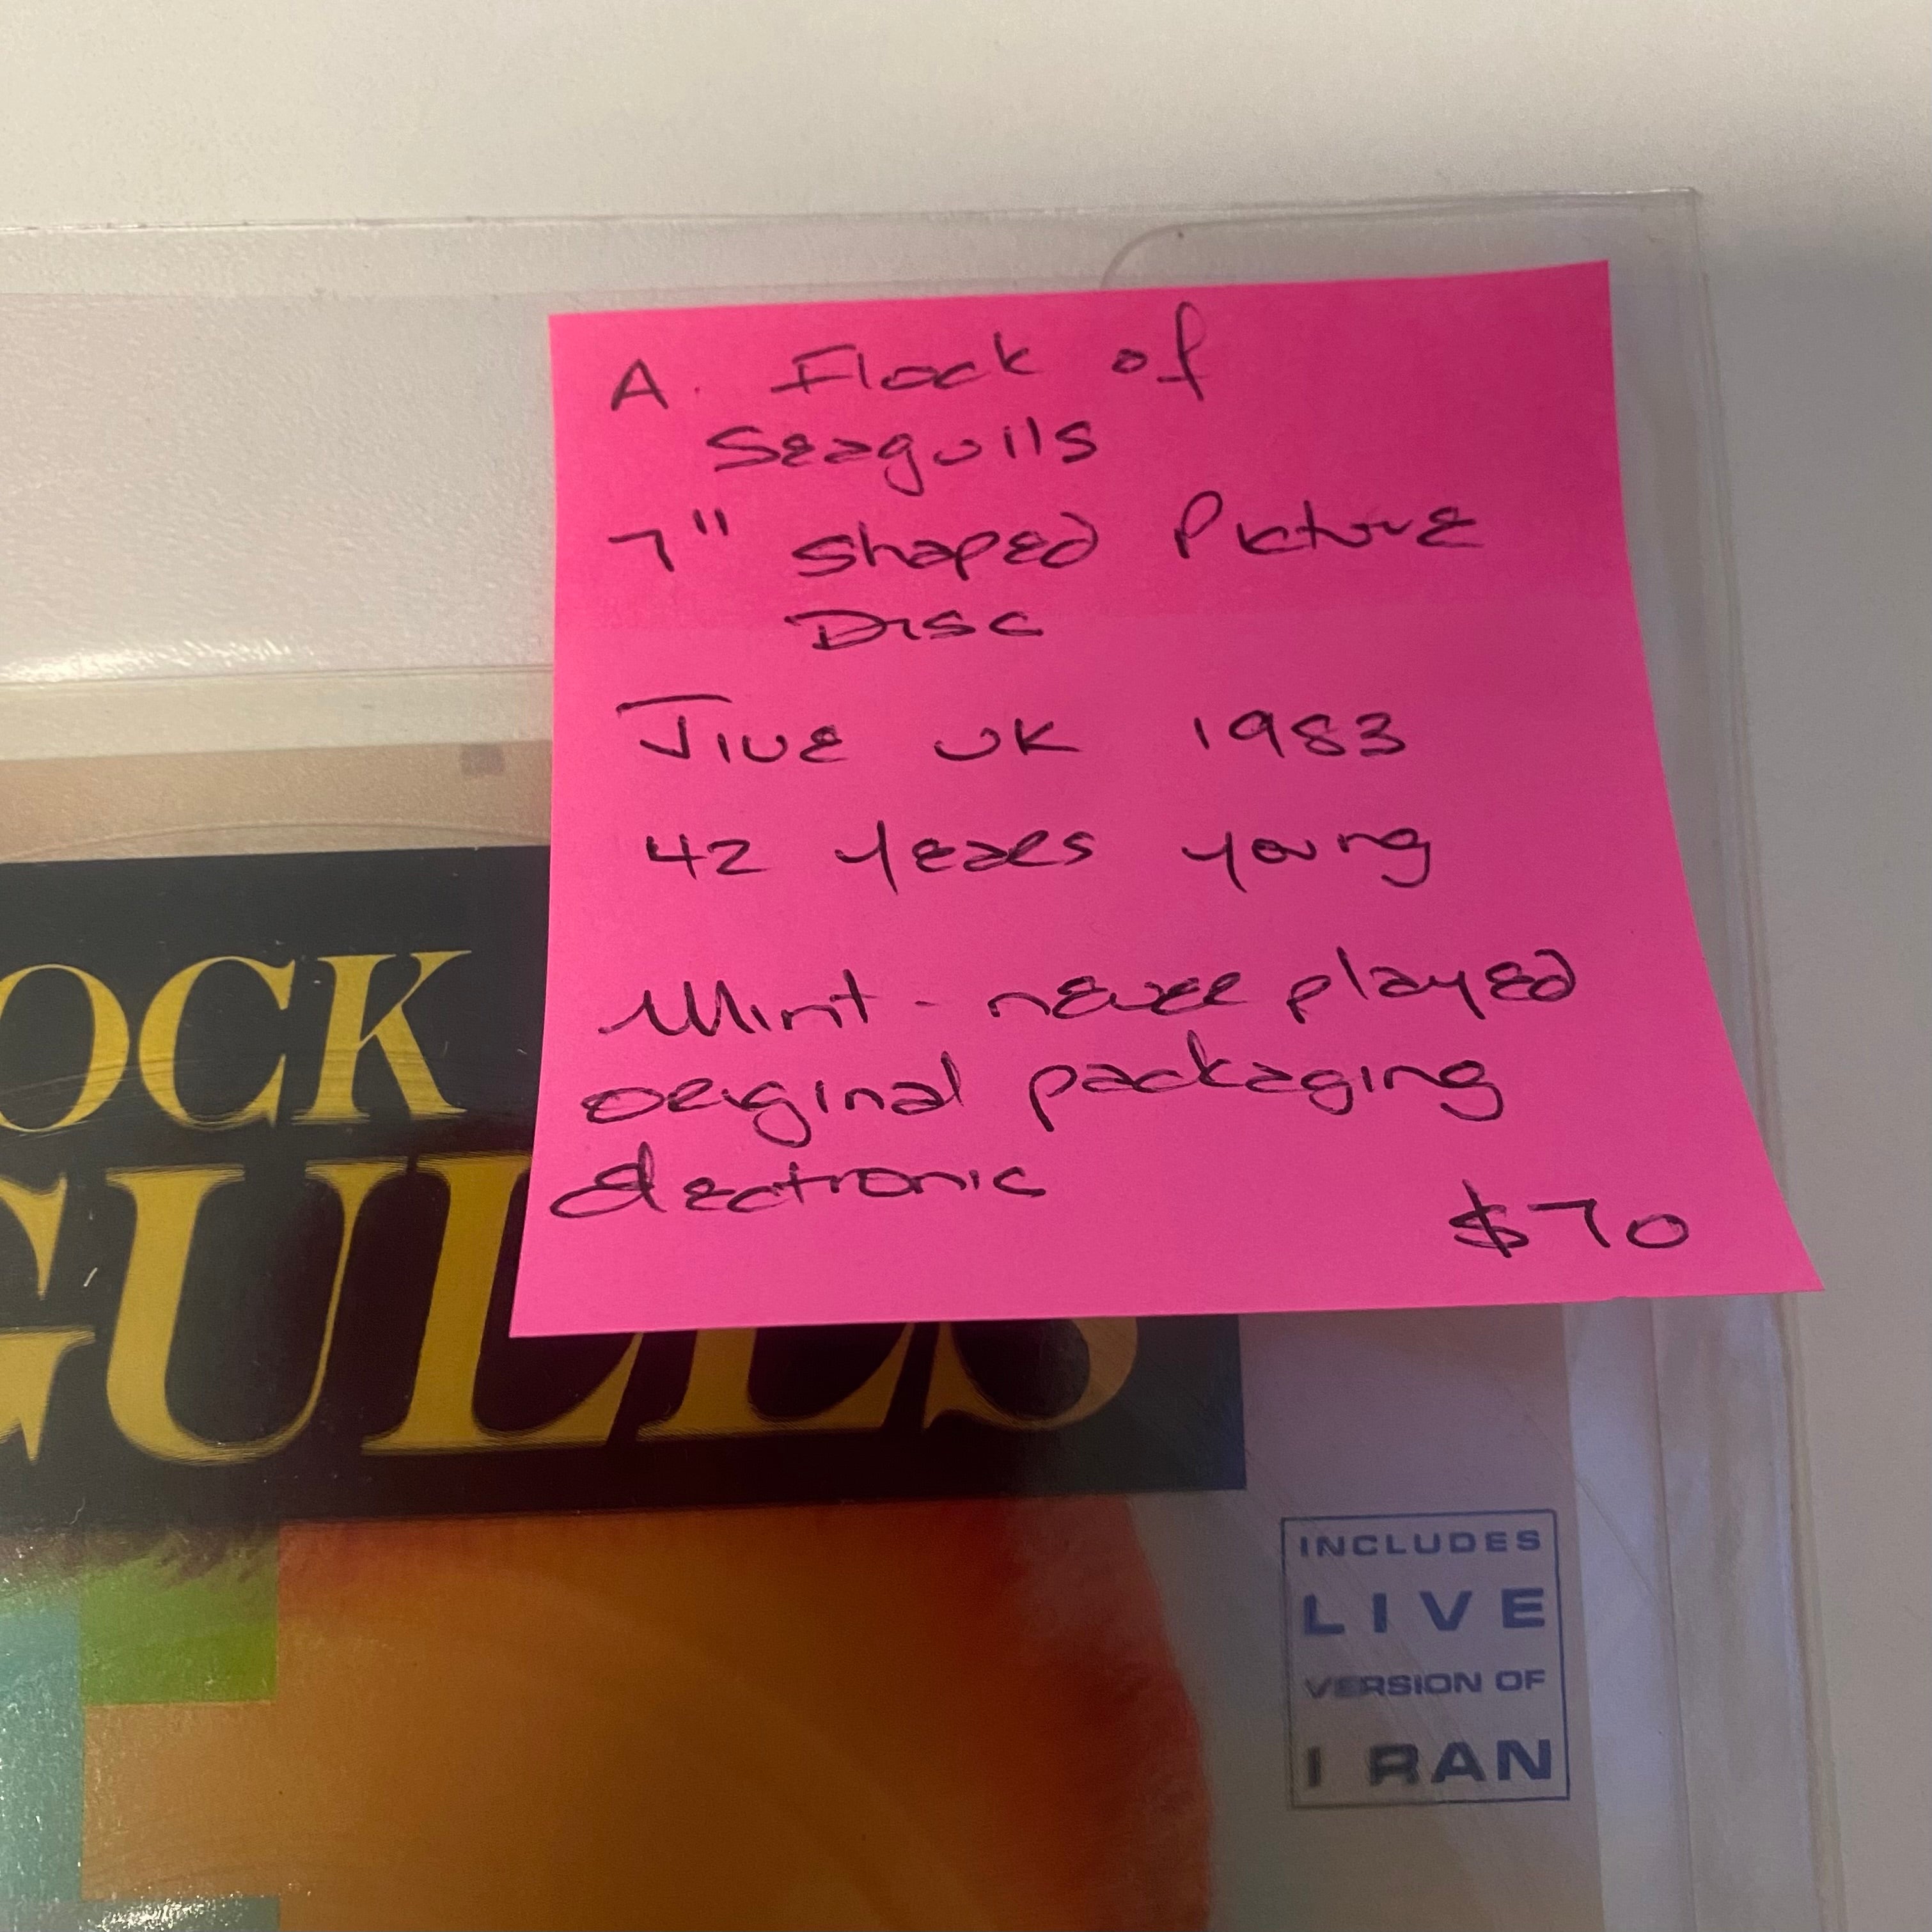 A. Flock of
Seagulls
7" shaped Picture
Disc
Jive UK 1983
42 years young
Mint - never played
original packaging
electronic
$70
OCK
GULLS
INCLUDES
LIVE
VERSION OF
I RAN